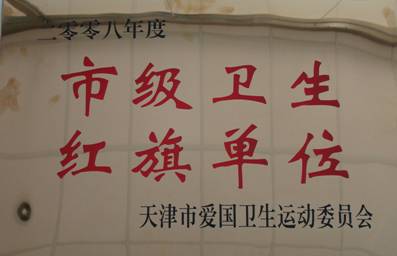 二零零八年度
市级卫生
红旗单位
天津市爱国卫生运动委员会